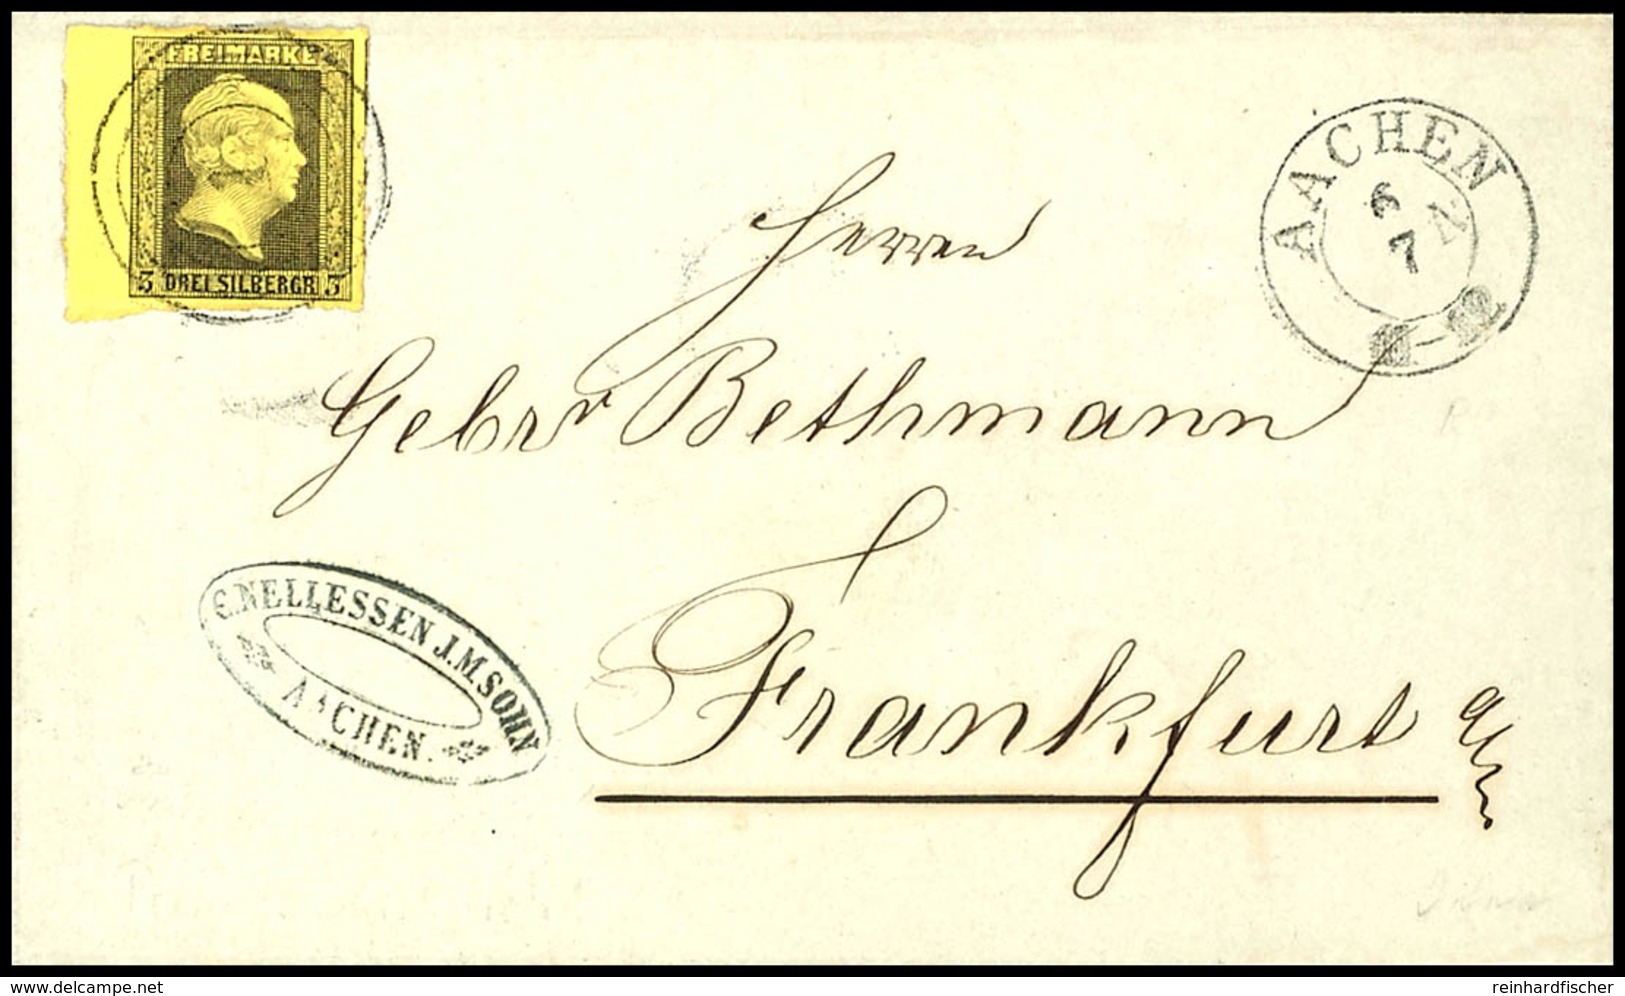 FREIMARKE
3 DREI SILBERGR 3
AACHEN
6 N
7
Herren
Gebrr Bethmann
Frankfurt a/m
C. NELLESSEN J.M.SOHN
AACHEN.
www.delcampe.net
reinhardfischer